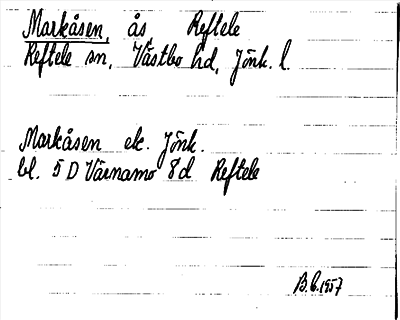 Markåsen, ås, Reftele
Reftele sn, Västbo hd, Jönk. l.
Markåsen ek. Jönk.
bl. 5 D Värnamo 8d Reftele
B.C. 1957